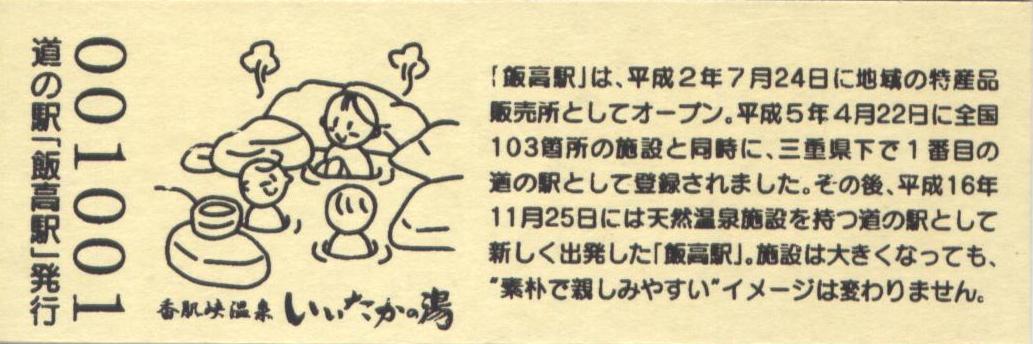 001001
道の駅「飯高駅」発行
「飯高駅」は、平成2年7月24日に地域の特産品
販売所としてオープン。平成5年4月22日に全国
103箇所の施設と同時に、三重県下で1番目の
道の駅として登録されました。その後、平成16年
11月25日には天然温泉施設を持つ道の駅として
新しく出発した「飯高駅」。施設は大きくなっても、
“素朴で親しみやすい”イメージは変わりません。
香肌峡温泉 いいたかの湯